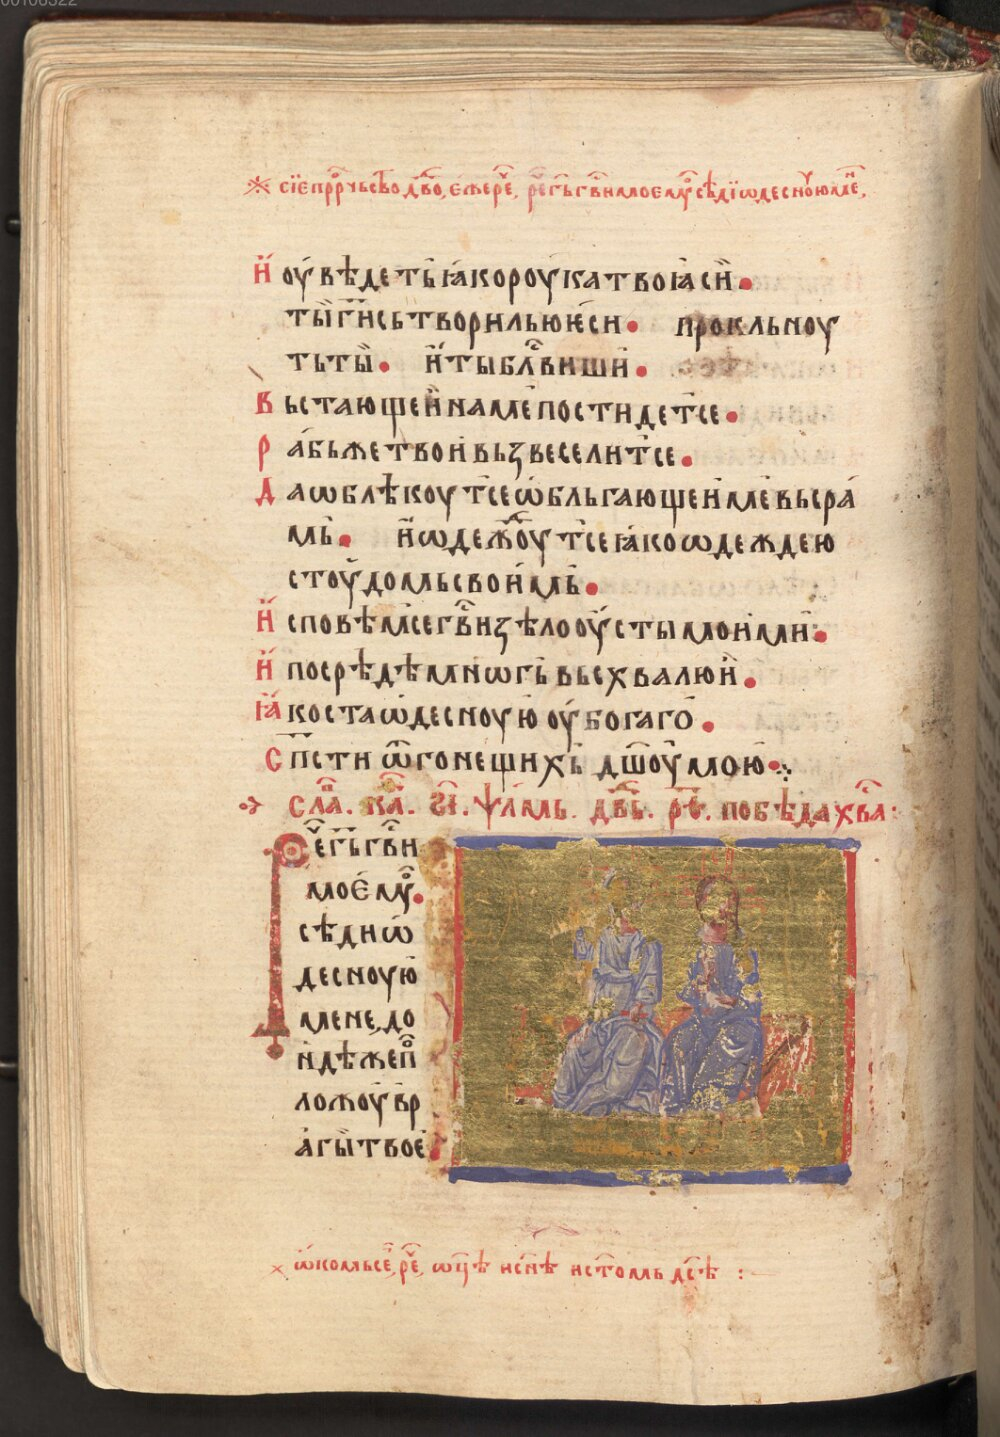 сїе прⷪ҇рчьство дв҃dо, еже рⷱ҇е, рⷱ҇е гь гв҃и моемꙋ сѣдї ѡдесноую мене,
И҆ оу҆вѣдеть ꙗ҆ко роука твоꙗ си҆.
ты г҃и сьтвориль ю ѥси. прокльноу
ть ты̀. и҆ ты блв҃иши.
Вьстающеи на ме постидетсе.
Раⷠ҇бь же твои вьзвеселитсе.
Да ѡблѣкоутсе ѡбльгающеи ме вь сра
мь. и҆ ѡдеждоутсе ꙗ҆ко ѡдеждею
стоудомь своимь.
И҆сповѣмсе гв҃и ѕѣло оу҆сты моими.
И҆ посрѣдѣ мнѡгь вьсхвалю и҆.
Ꙗ҆ко ста ѡдесноую оу҆богаго.
Сп҃сти ѿ гонещихь дш҃оу мою
сла҃. ка҃. ѱалмь. дв҃дь. рⷱ҇е. побѣда хв҃а:
Рⷱ҇е гь гв҃и
моемꙋ.
сѣди ѡ
десноую
мене, до
ндѣже по
ложоу вр
агы твое
ѡкомь се, рⷱ҇е, ѡц҃ѣ и сн҃ѣ и стомь дс҃ѣ :